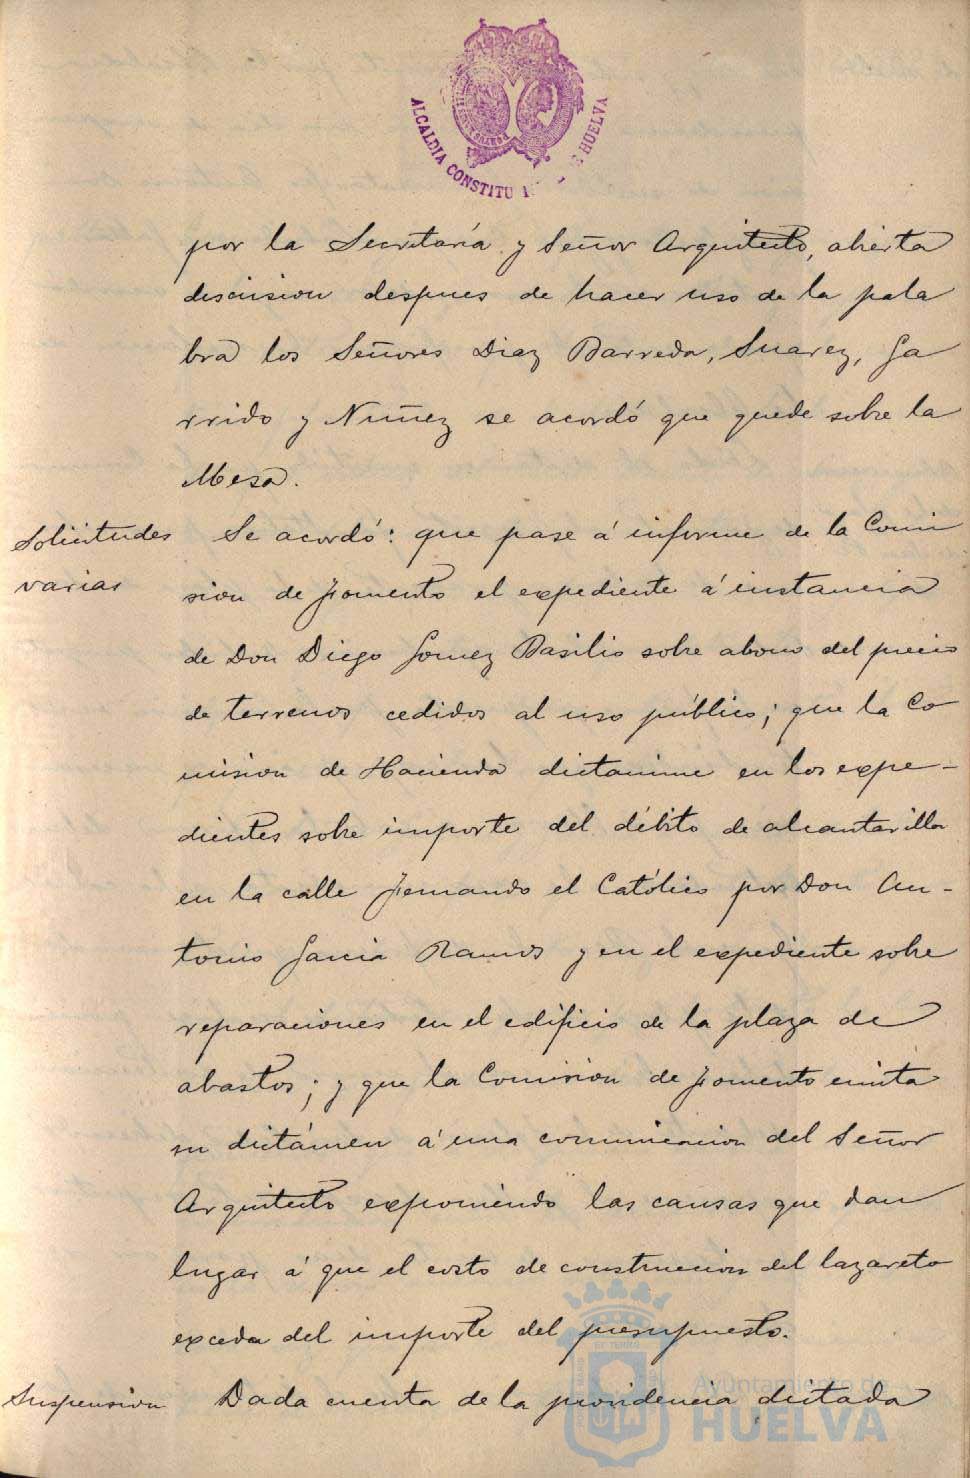 ALCALDIA CONSTITU HUELVA
por la Secretaría y Señor Arquitecto, abierta
discusion despues de hacer uso de la pala
bra los Señores Diaz Barreda, Suarez, Ga
rrido y Nuñez se acordó que quede sobre la
Mesa.
Solicitudes
varias
Se acordó: que pase á informe de la Comi
sion de Fomento el expediente á instancia
de Don Diego Gomez Basilio sobre abono del precio
de terrenos cedidos al uso público; que la Co
mision de Hacienda dictamine en los expe-
dientes sobre importe del débito de alcantarilla
en la calle Fernando el Católico por Don An-
tonio Garcia Ramos y en el expediente sobre
reparaciones en el edificio de la plaza de
abastos; y que la Comision de Fomento emita
su dictámen á una comunicacion del Señor
Arquitecto exponiendo las causas que dan
lugar á que el costo de construccion del lazareto
exceda del importe del presupuesto.
Suspension
Dada cuenta de la providencia dictada
Ayuntamiento de
HUELVA